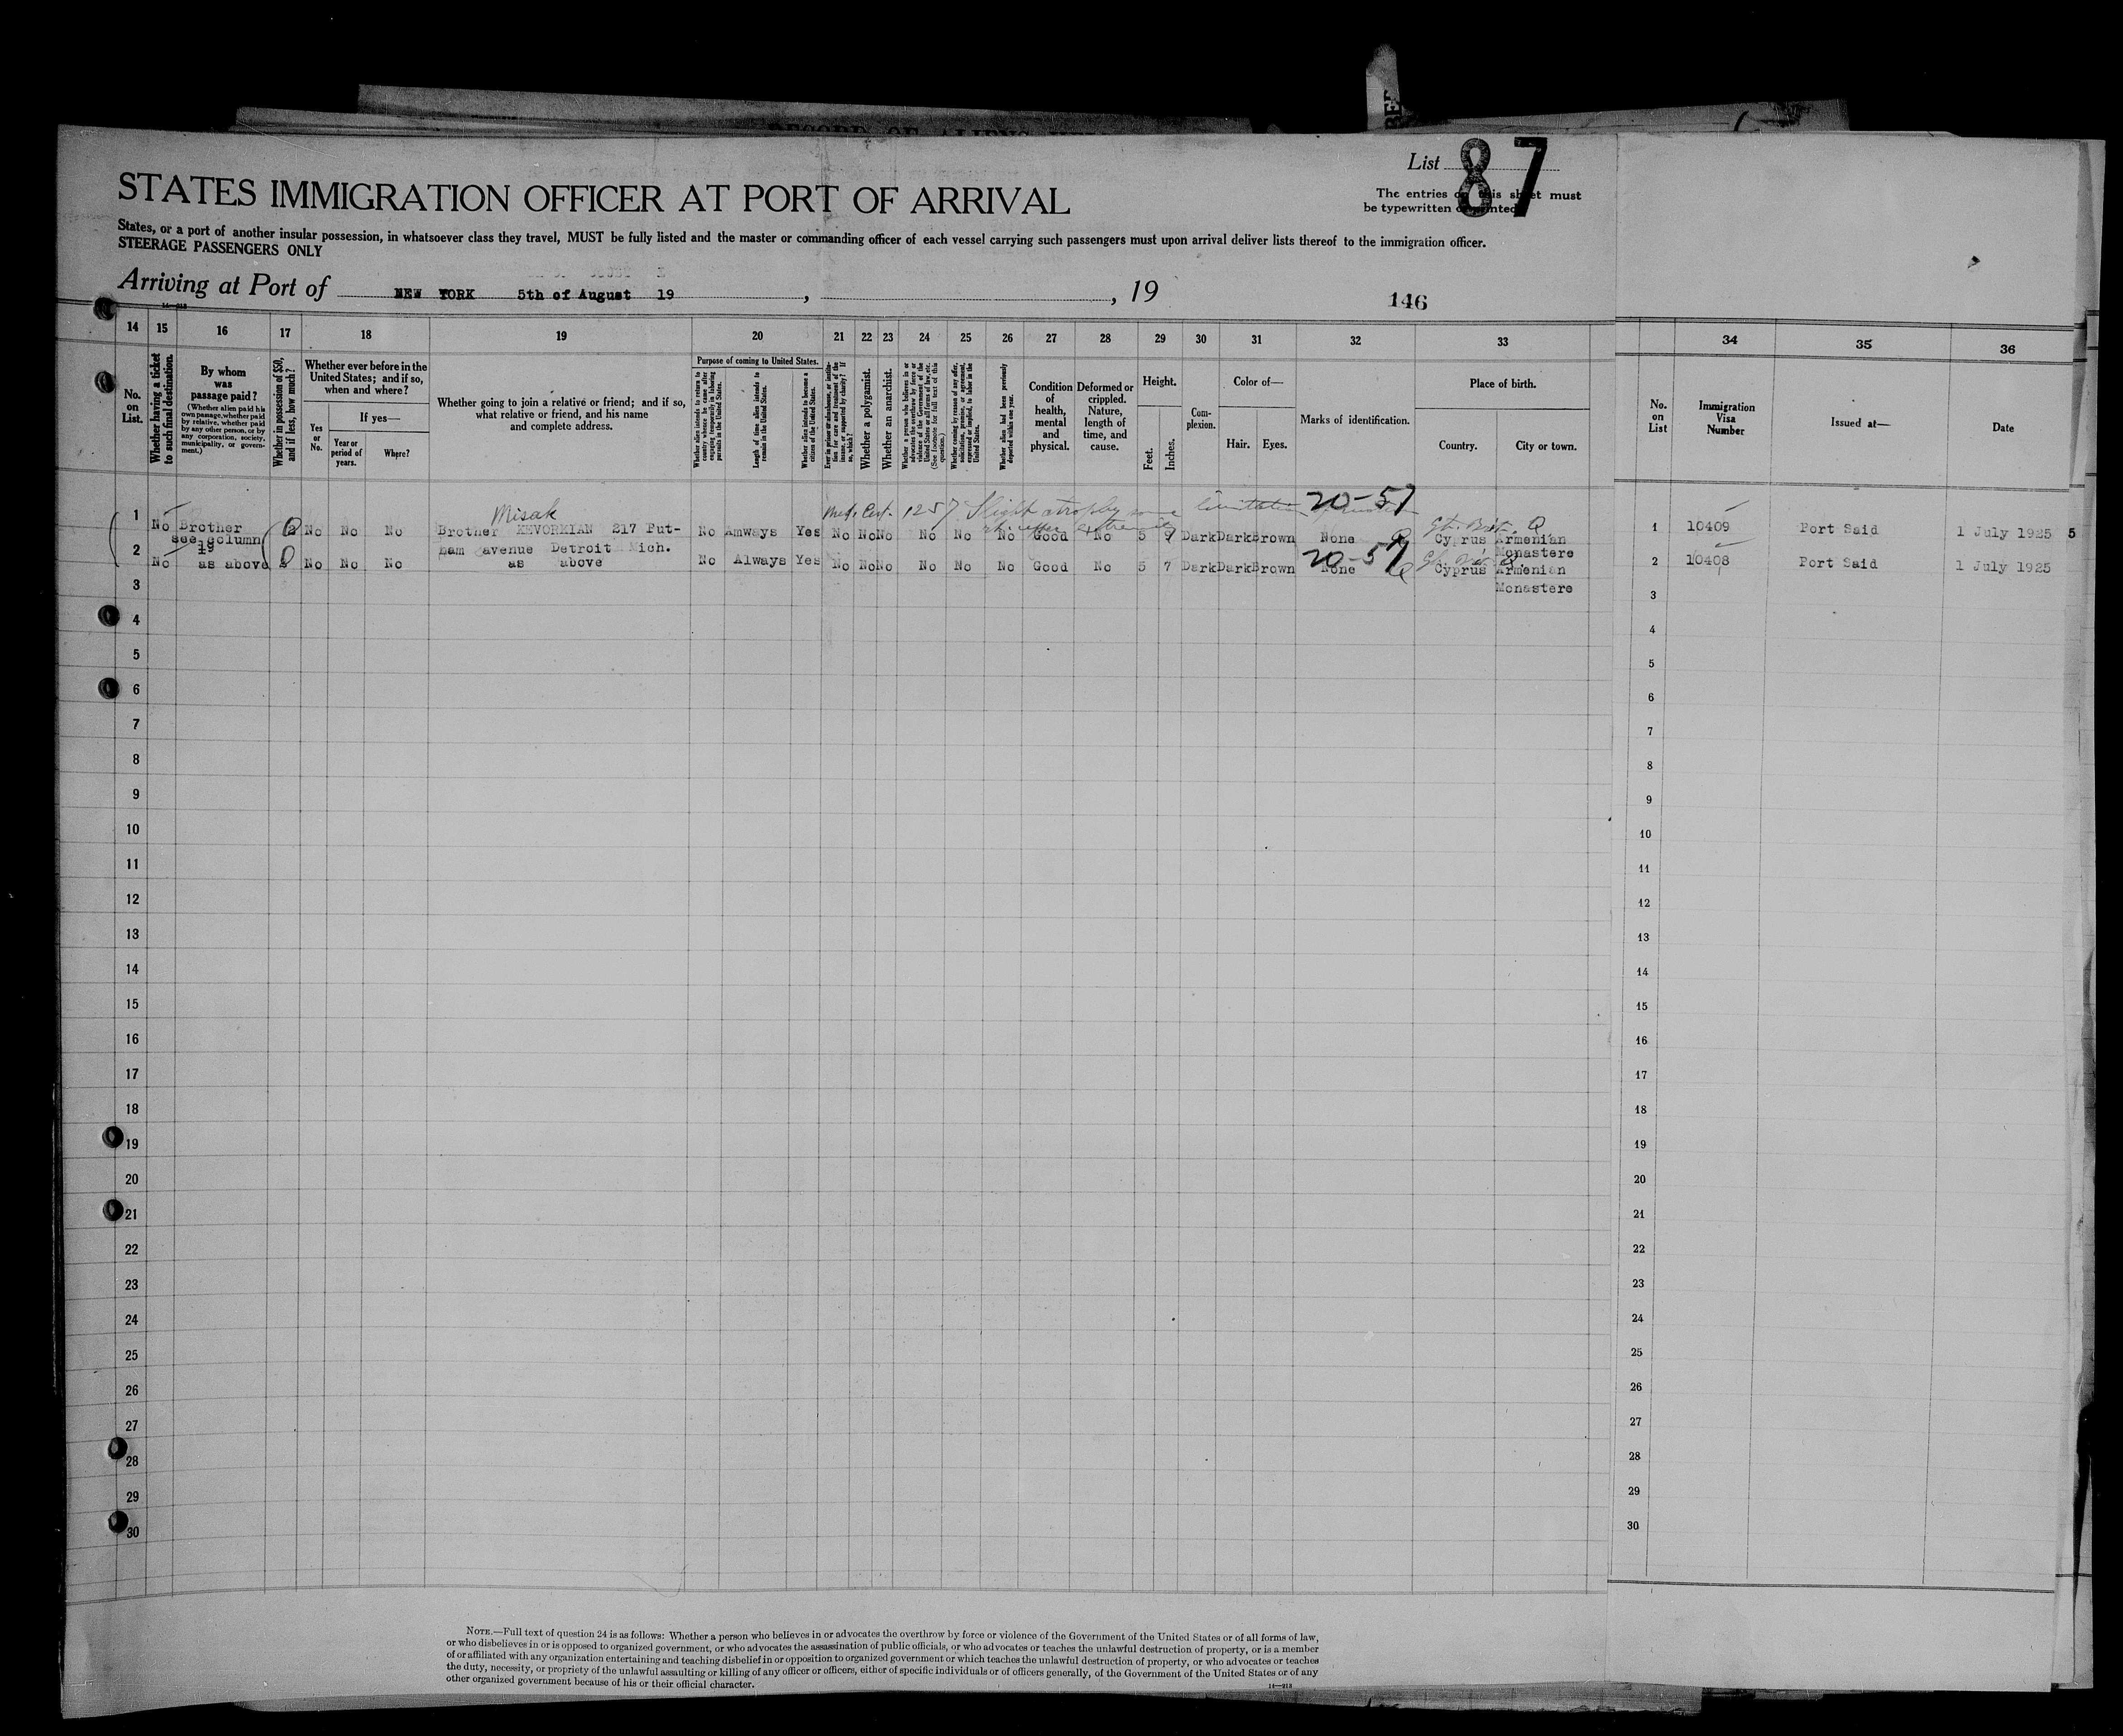 RECORD OF ALIENS
List 87
The entries on this sheet must
be typewritten or printed
STATES IMMIGRATION OFFICER AT PORT OF ARRIVAL
States, or a port of another insular possession, in whatsoever class they travel, MUST be fully listed and the master or commanding officer of each vessel carrying such passengers must upon arrival deliver lists thereof to the immigration officer.
STEERAGE PASSENGERS ONLY
Arriving at Port of NEW YORK 5th of August 19 , , 19
146
14—213
14 15 16 17 18 19 20 21 22 23 24 25 26 27 28 29 30 31 32 33 34 35 36
No. on List.
Whether having a ticket to such final destination.
By whom was passage paid?
(Whether alien paid his own passage, whether paid by relative, whether paid by any other person, or by any corporation, society, municipality, or government.)
Whether in possession of $50, and if less, how much?
Whether ever before in the United States; and if so, when and where?
Yes or No.
If yes—
Year or period of years.
Where?
Whether going to join a relative or friend; and if so, what relative or friend, and his name and complete address.
Purpose of coming to United States.
Whether alien intends to return to country whence he came after engaging temporarily in laboring pursuits in the United States.
Length of time alien intends to remain in the United States.
Whether alien intends to become a citizen of the United States.
Ever in prison or almshouse, or institution for care and treatment of the insane, or supported by charity? If so, which?
Whether a polygamist.
Whether an anarchist.
Whether a person who believes in or advocates the overthrow by force or violence of the Government of the United States or all forms of law, etc. (See footnote for full text of this question.)
Whether coming by reason of any offer, solicitation, promise, or agreement, expressed or implied, to labor in the United States.
Whether alien had been previously deported within one year.
Condition of health, mental and physical.
Deformed or crippled. Nature, length of time, and cause.
Height.
Feet.
Inches.
Complexion.
Color of—
Hair.
Eyes.
Marks of identification.
Place of birth.
Country.
City or town.
No. on List
Immigration Visa Number
Issued at—
Date
Misak Med. Cert. 1257 Slight atrophy some limitation 20-57
upper extremity Gt. Brit.
1 No Brother No No No Brother KEVORKIAN 217 Put- No Amways Yes No No No No No No Good No 5 9 Dark Dark Brown None Cyprus Armenian 1 10409 Port Said 1 July 1925 5
see column nam avenue Detroit Mich. Monastere
19 20-57
2 No as above No No No as above No Always Yes No No No No No No Good No 5 7 Dark Dark Brown None Cyprus Armenian 2 10408 Port Said 1 July 1925
Monastere
3 3
4 4
5 5
6 6
7 7
8 8
9 9
10 10
11 11
12 12
13 13
14 14
15 15
16 16
17 17
18 18
19 19
20 20
21 21
22 22
23 23
24 24
25 25
26 26
27 27
28 28
29 29
30 30
NOTE.—Full text of question 24 is as follows: Whether a person who believes in or advocates the overthrow by force or violence of the Government of the United States or of all forms of law,
or who disbelieves in or is opposed to organized government, or who advocates the assassination of public officials, or who advocates or teaches the unlawful destruction of property, or is a member
of or affiliated with any organization entertaining and teaching disbelief in or opposition to organized government or which teaches the unlawful destruction of property, or who advocates or teaches
the duty, necessity, or propriety of the unlawful assaulting or killing of any officer or officers, either of specific individuals or of officers generally, of the Government of the United States or of any
other organized government because of his or their official character.
14—213